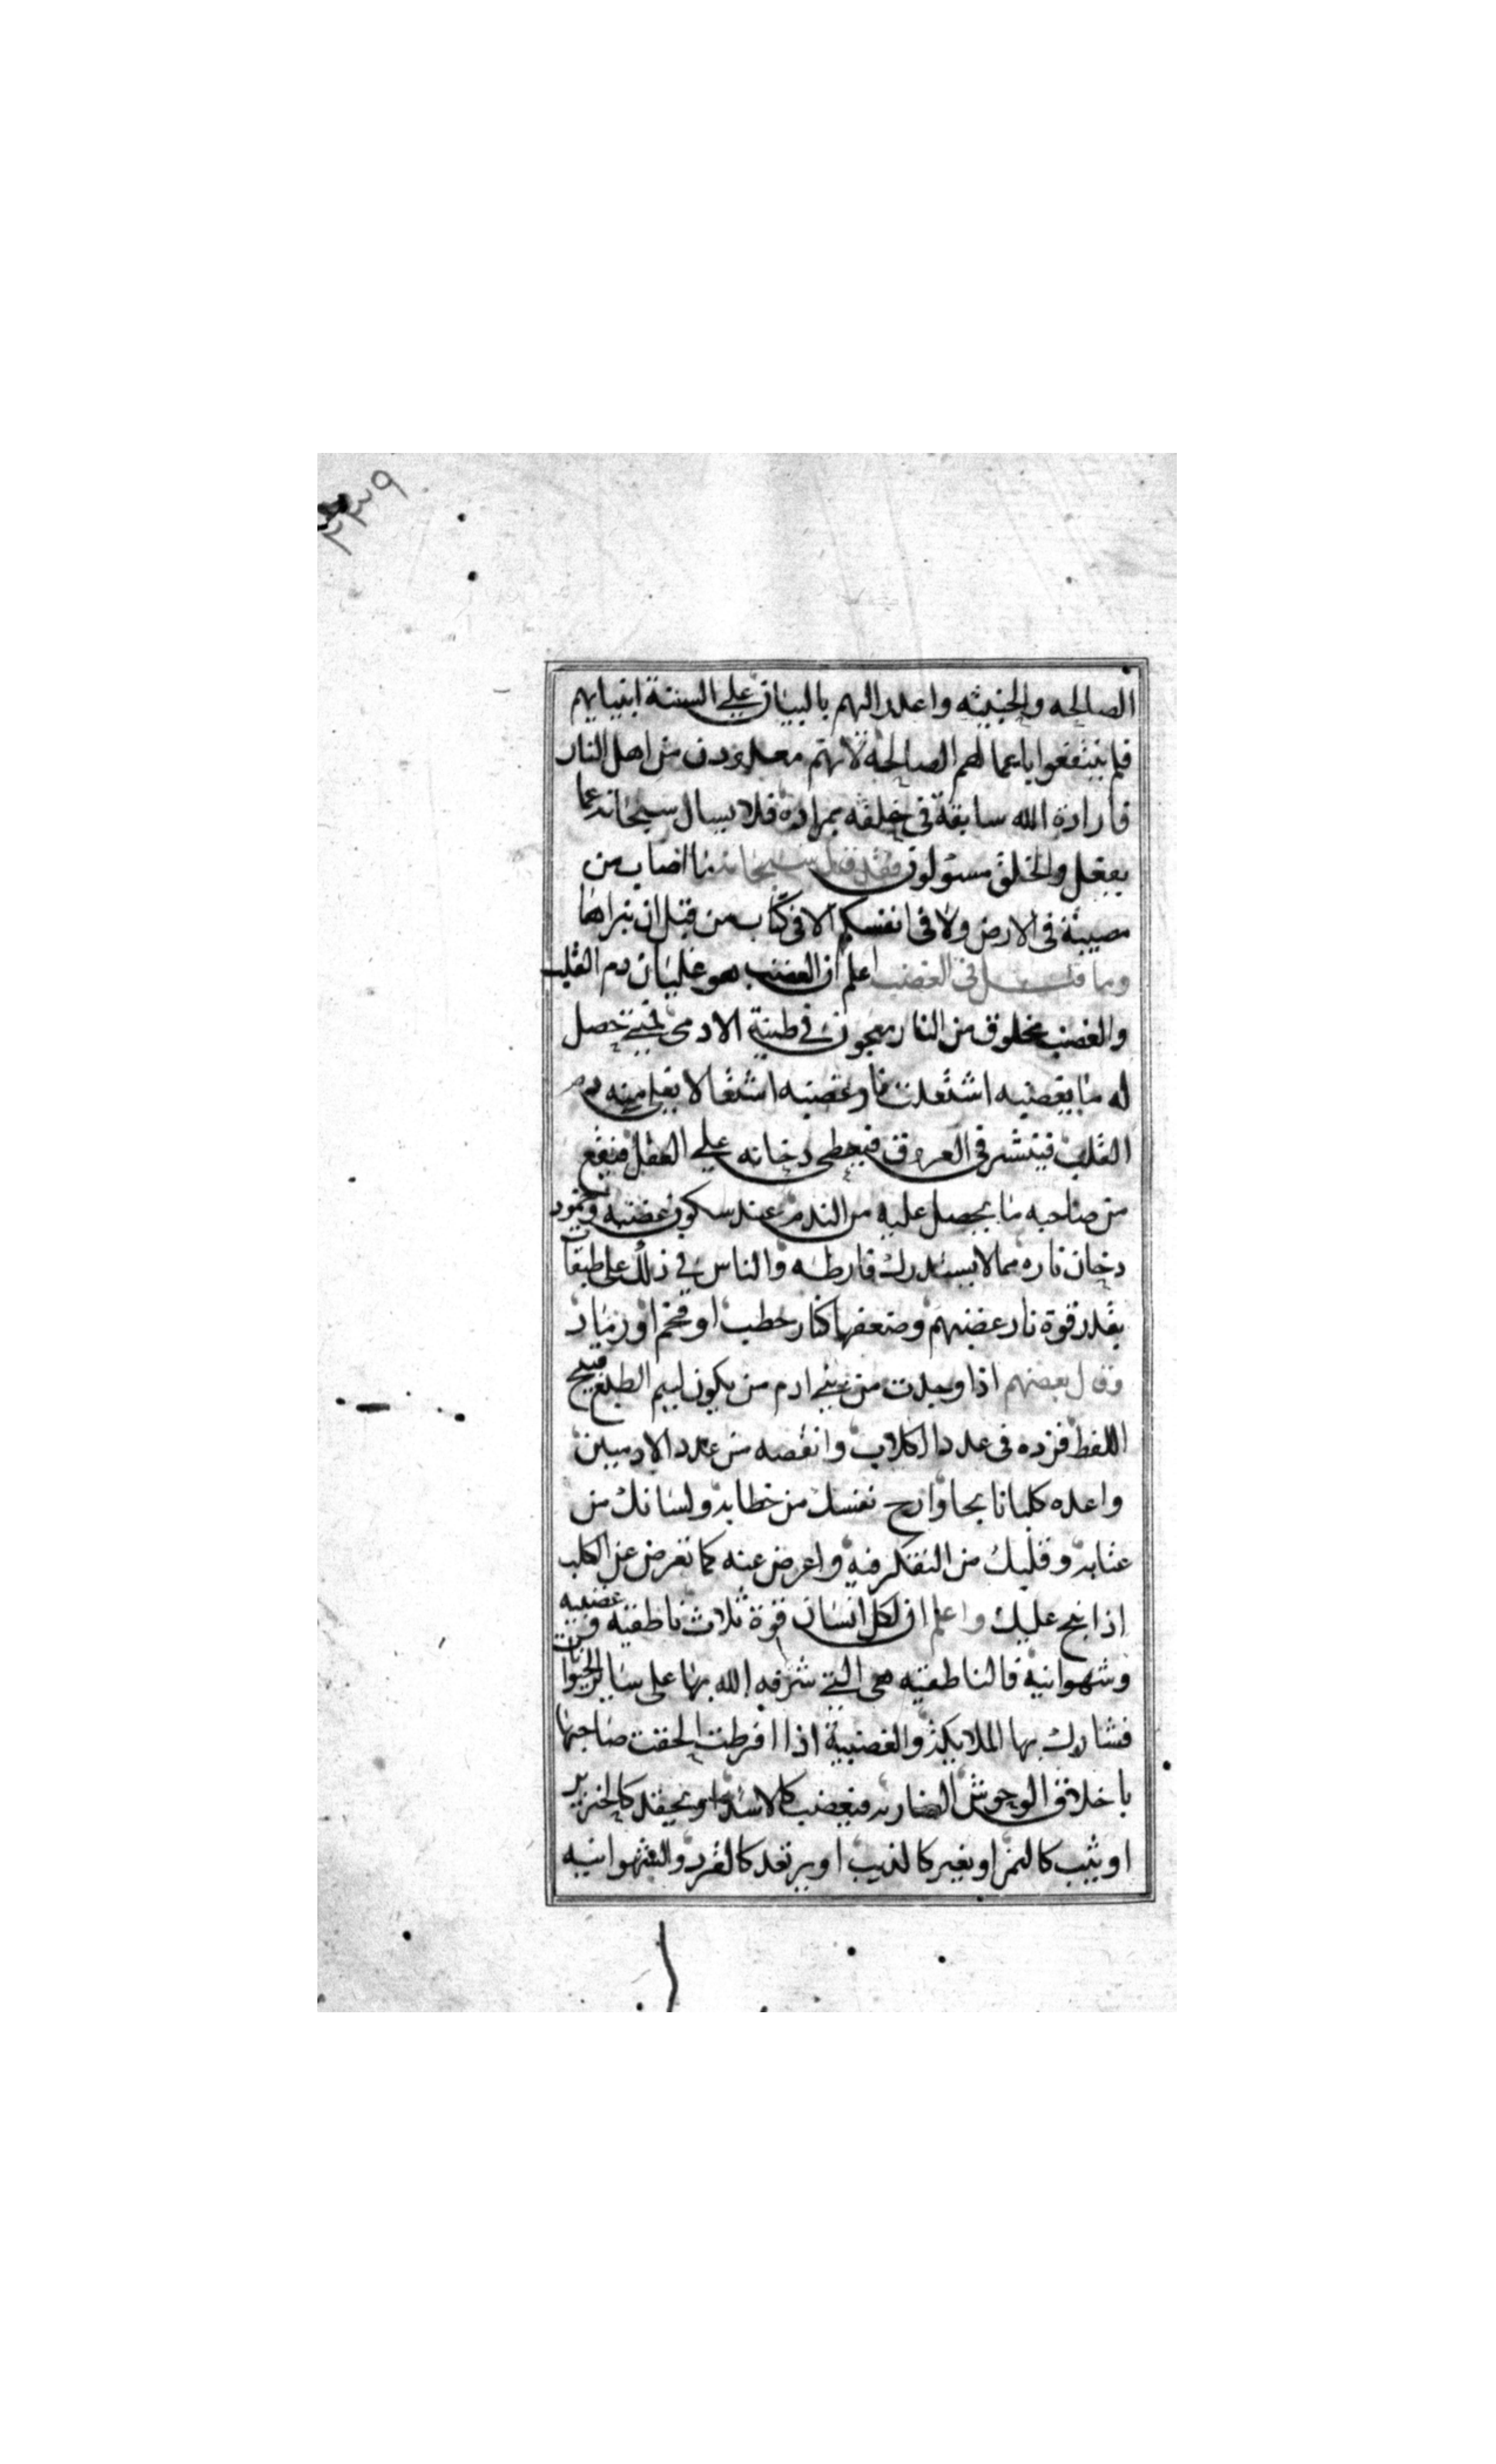 ٢٣٩
الصالحه والخبيثه واعدر اليهم بالبيان علي السنة انبيايهم
فلم ينتفعوا باعمالهم الصالحة لانهم معدودون من اهل النار
فارادة الله سابقة في خلقه بمراده فلا يسال سبحانه عما
يفعل والخلق مسئولون فقد قال سبحانه ما اصاب من
مصيبة في الارض ولا في انفسكم الا في كتاب من قبل ان نبراها
ومما قيل في الغضب اعلم ان الغضب هو غليان دم القلب
والغضب مخلوق من النار معجون في طينة الادمي فمتي حصل
له ما يغضبه اشتعلت نار غضبه اشتعالا يغلي منه دم
القلب فينتشر في العروق فيغطي دخانه علي العقل فيقع
من صاحبه ما يحصل عليه من الندم عند سكون غضبه وخمود
دخان ناره مما لا يستدرك فارطه والناس في ذلك على طبقات
بقدر قوة نار غضبهم وضعفها كنار حطب او فحم او رماد
وقال بعضهم اذا وجدت من بني ادم من يكون لييم الطبع قبيح
اللفظ فزده في عدد الكلاب وانقصه من عدد الادميين
واعده كلبا نابحا وارح نفسك من خطابه ولسانك من
عتابه وقلبك من التفكر فيه واعرض عنه كما تعرض عن الكلب
اذا نبح عليك واعلم ان لكل انسان قوة ثلاث ناطقية وغضبيه
وشهوانية فالناطقيه هي التي شرفه الله بها على ساير الحيوانات
فشارك بها الملايكة والغضبية اذا افرطت الحقت صاحبها
باخلاق الوحوش الضاريه فيغضب كالاسد او يحقد كالخنزير
او يثب كالنمر او يغير كالذيب او يرتعد كالقرد والشهوانيه